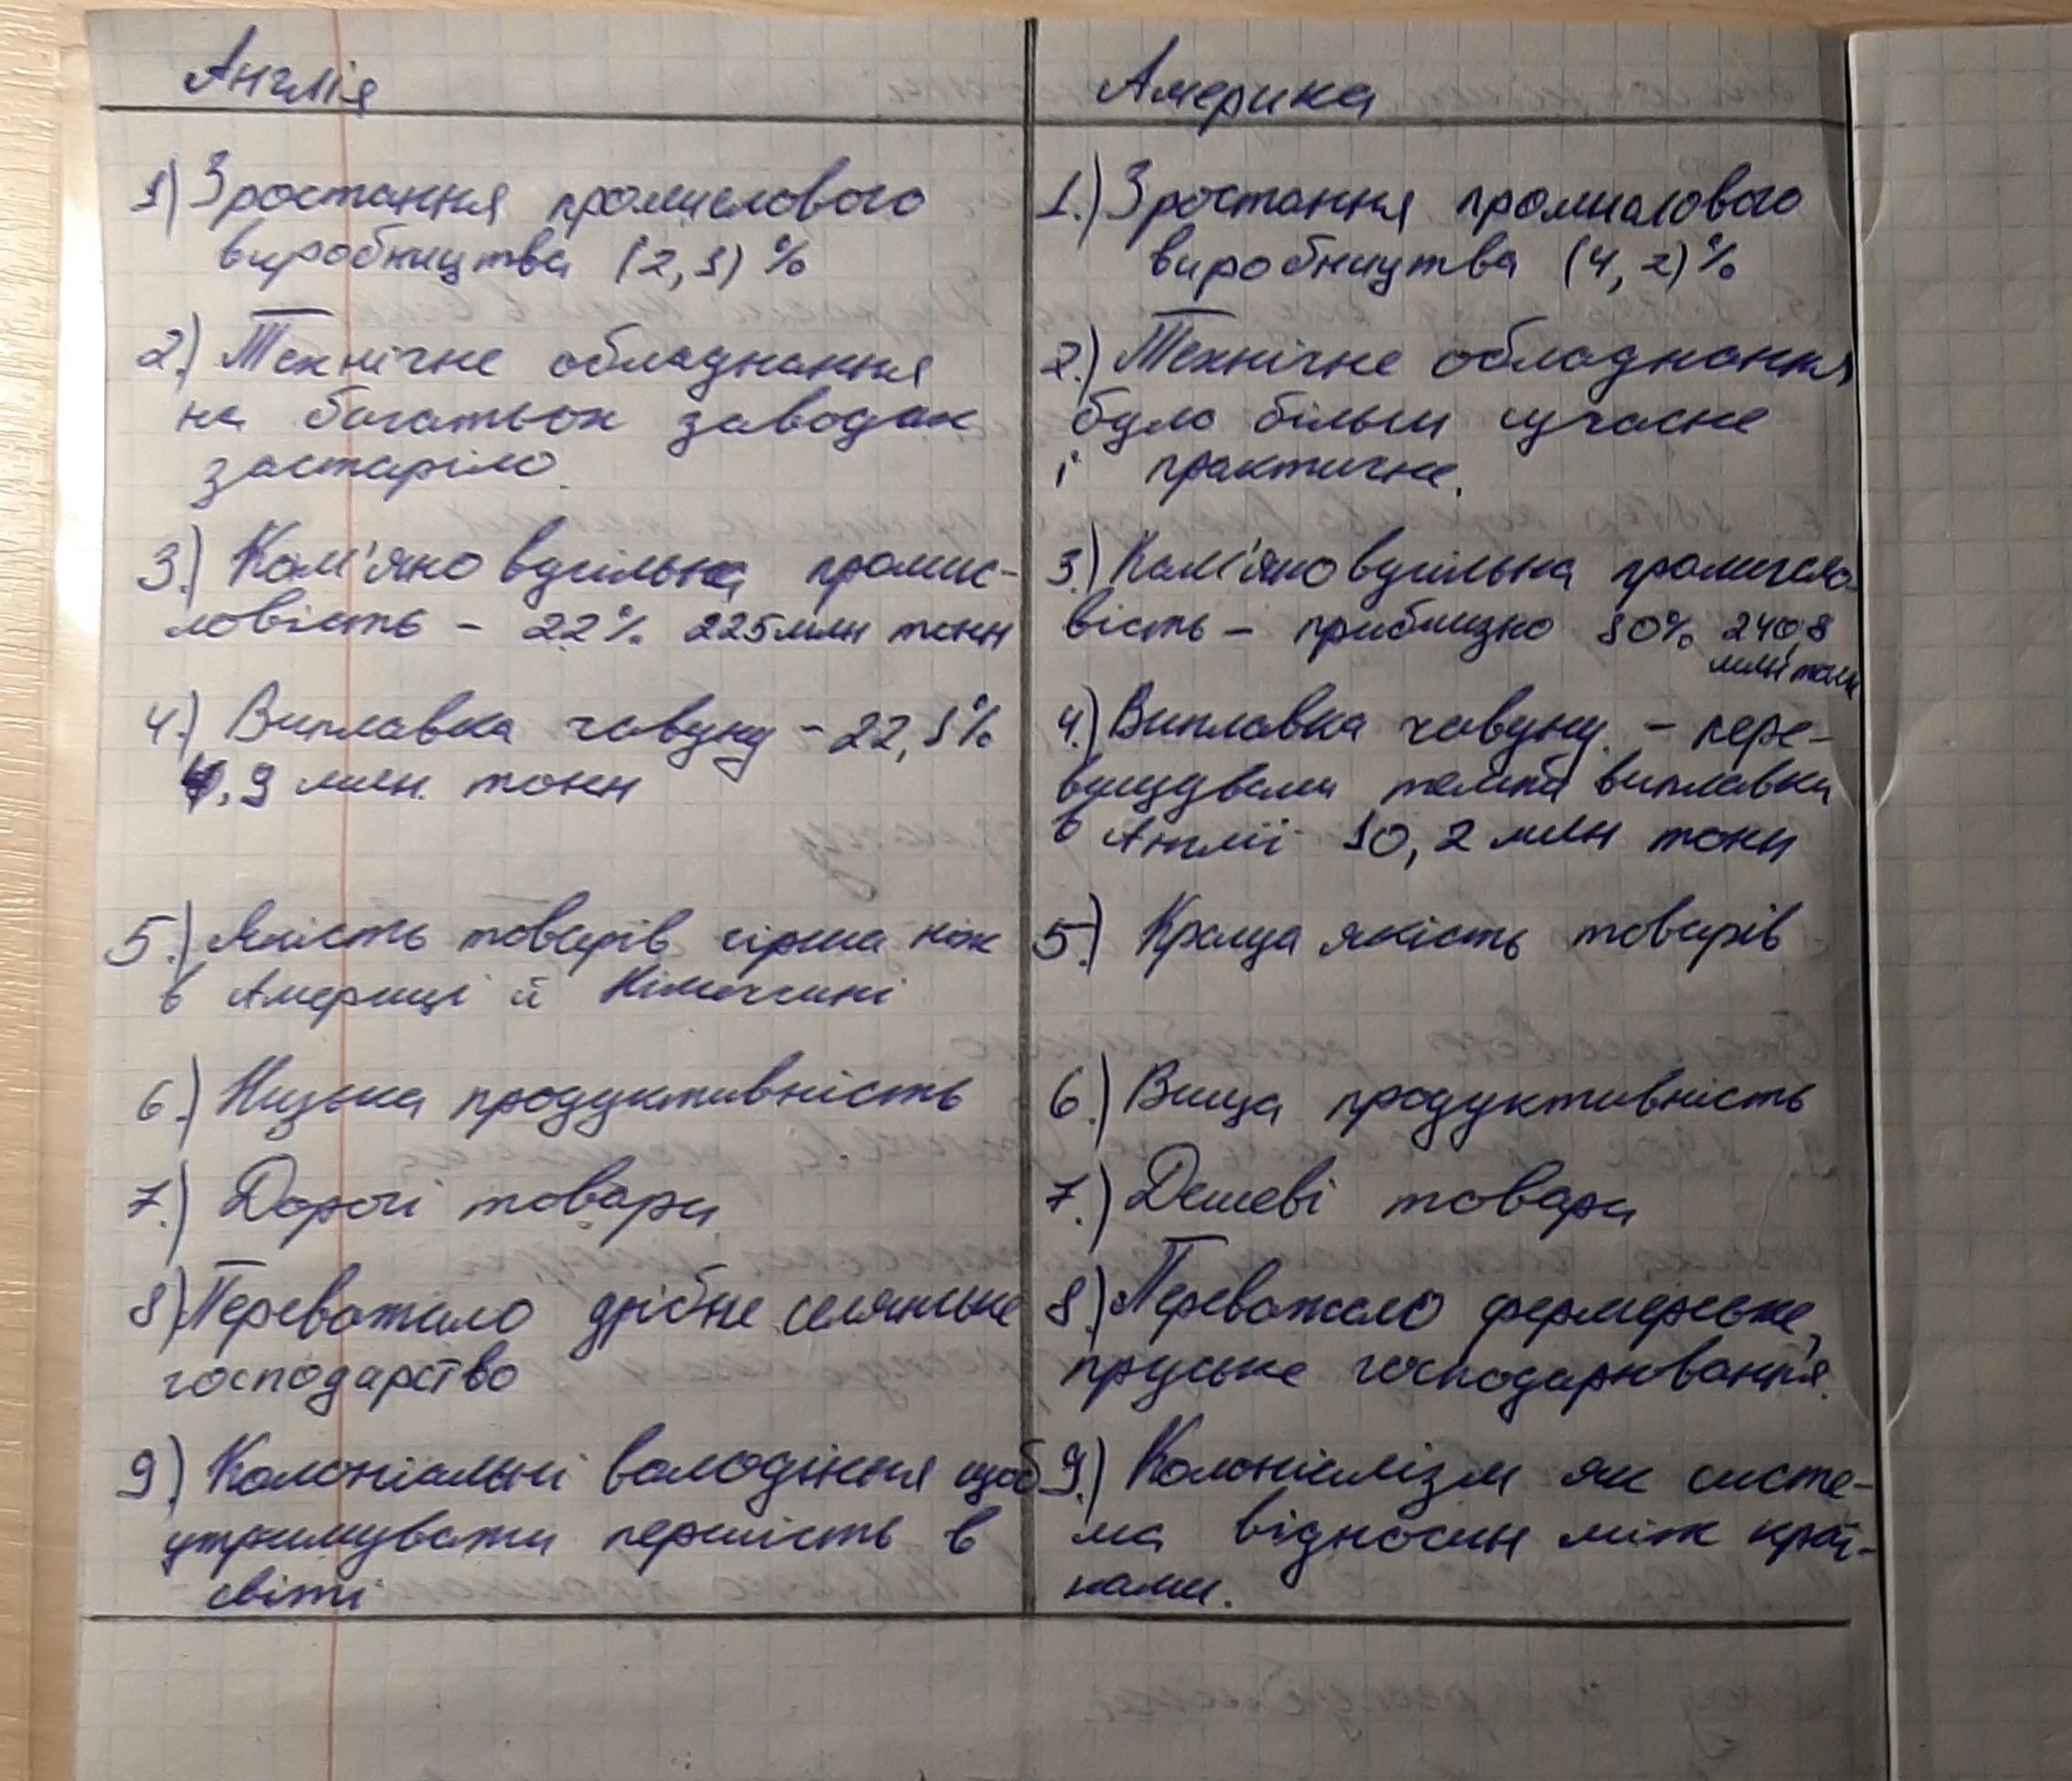 Англія
1) Зростання промислового
виробництва (2,1) %
2.) Технічне обладнання
на багатьох заводах
застаріло.
3.) Кам'яно вугільна промис-
ловість - 22% 225 млн тонн
4.) Виплавка чавуну - 22,1%
.9 млн. тонн
5.) Якість товарів гірша ніж
в Америці й Німеччині
6.) Низька продуктивність
7.) Дорогі товари
8) Переважало дрібне селянське
господарство
9) Колоніальні володіння щоб
утримувати першість в
світі
Америка
1.) Зростання промислового
виробництва (4,2) %
2.) Технічне обладнання
було більш сучасне
і практичне.
3.) Кам'яно вугільна промисло-
вість - приблизно 10% 240,8
млн тонн
4.) Виплавка чавуну. - пере-
вищували темпи виплавки
в Англії 10,2 млн тонн
5.) Краща якість товарів
6.) Вища продуктивність
7.) Дешеві товари
8.) Переважало фермерське,
пруське господарювання.
9.) Колоніалізм як систе-
ма відносин між краї-
нами.